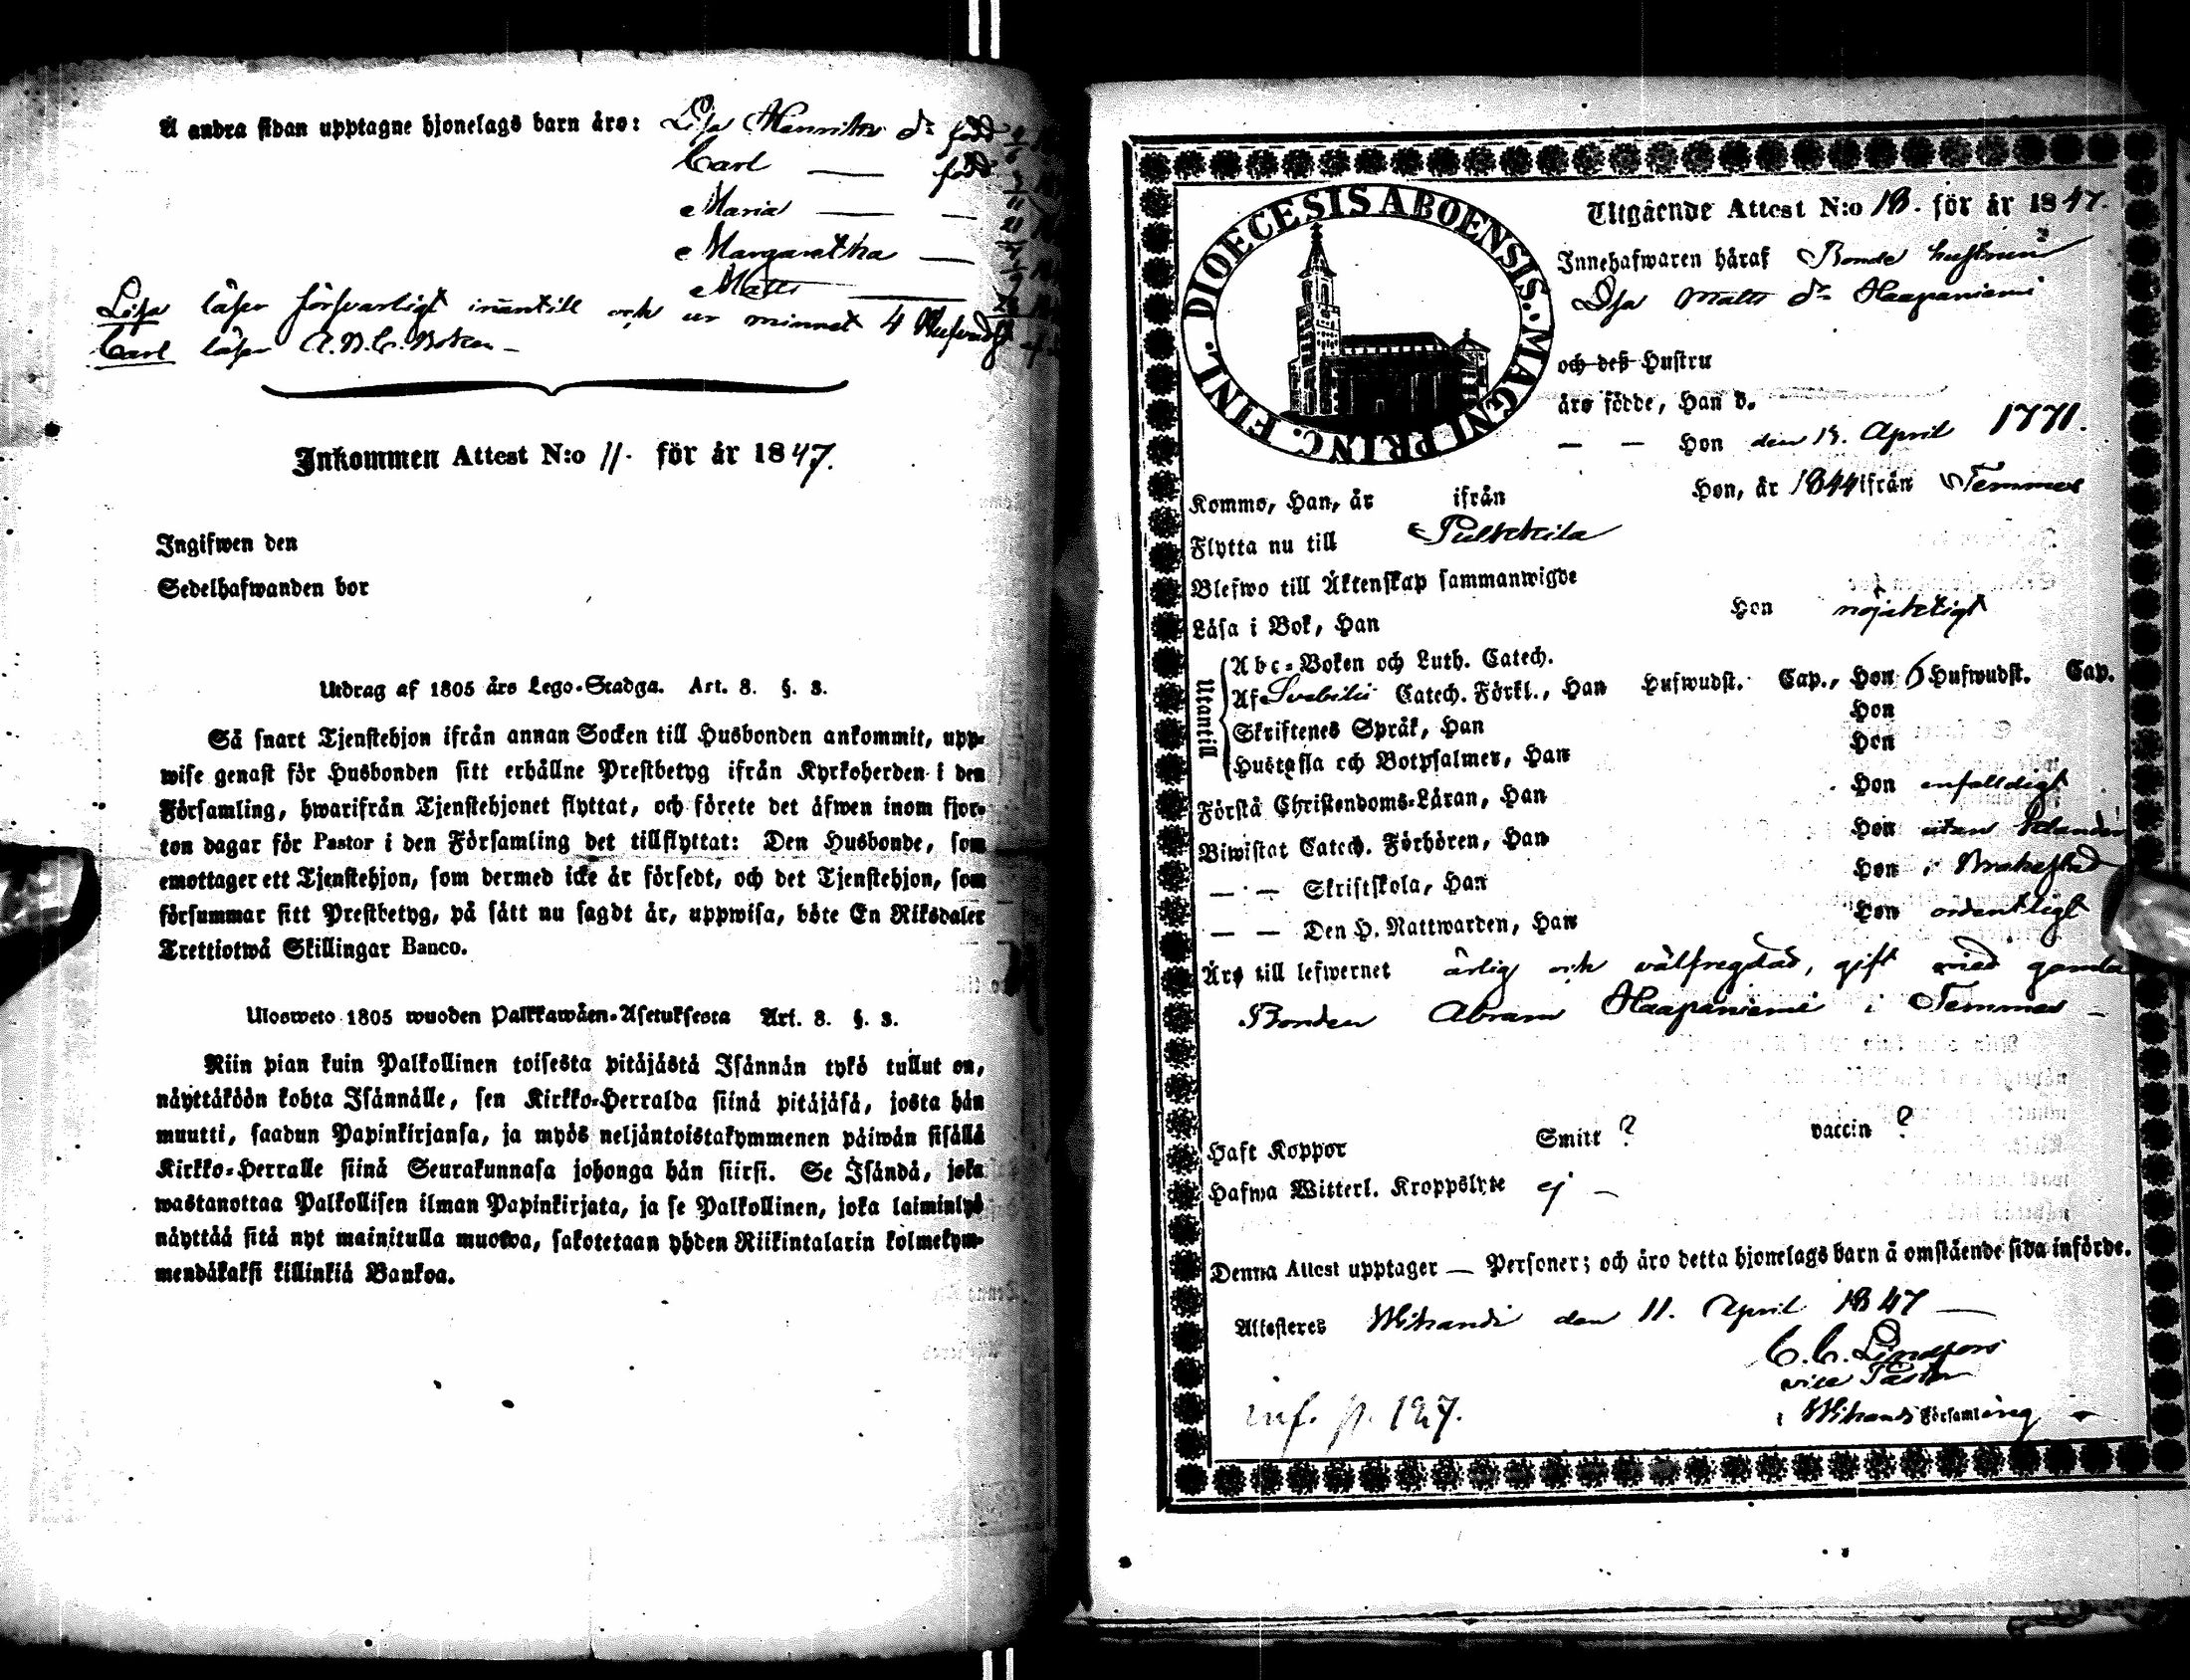 Å andra sidan upptagne hjonelags barn äro: Lisa Henriks dr född
Carl — född
Maria — —
Margaretha —
Matts —
Lisa läser försvarligt innantill och ur minnet 4 Hufvudst
Carl läser A.B.C. Boken —
Inkommen Attest N:o 11. för år 1847.
Ingifwen den
Sedelhafwanden bor
Utdrag af 1805 års Lego-Stadga. Art. 8. §. 3.
Så snart Tjenstehjon ifrån annan Socken till Husbonden ankommit, upp-
wise genast för Husbonden sitt erhållne Prestbetyg ifrån Kyrkoherden i den
Församling, hwarifrån Tjenstehjonet flyttat, och förete det äfwen inom fjor-
ton dagar för Pastor i den Församling det tillflyttat: Den Husbonde, som
emottager ett Tjenstehjon, som dermed icke är försedt, och det Tjenstehjon, som
försummar sitt Prestbetyg, på sätt nu sagdt är, uppwisa, böte En Riksdaler
Trettiotwå Skillingar Banco.
Ulosweto 1805 wuoden Palkkawäen-Asetuksesta Art. 8. §. 3.
Niin pian kuin Palkollinen toisesta pitäjästä Isännän tykö tullut on,
näyttäköön kohta Isännälle, sen Kirkko-Herralda siinä pitäjäsä, josta hän
muutti, saadun Papinkirjansa, ja myös neljäntoistakymmenen päiwän sisällä
Kirkko-Herralle siinä Seurakunnasa johonga hän siirsi. Se Isändä, joka
wastanottaa Palkollisen ilman Papinkirjata, ja se Palkollinen, joka laiminlyö
näyttää sitä nyt mainitulla muotoa, sakotetaan yhden Riikintalarin kolmekym-
mendäkaksi killinkiä Bankoa.
DIOECESIS ABOENSIS. MAGNI PRINC. FINL.
Utgående Attest N:o 18. för år 1847.
Innehafwaren häraf Bonde hustrun
Lisa Matts dr Haapaniemi
och deß Hustru
äro födde, Han d.
— — Hon den 13. April 1771.
Kommo, Han, år ifrån Hon, år 1844 ifrån Temmes
Flytta nu till Pulkkila
Blefwo till Äktenskap sammanwigde
Läsa i Bok, Han Hon nöjaktigt
Utantill
Abc-Boken och Luth. Catech.
Af Svebilii Catech. Förkl., Han Hufwudst. Cap., Hon 6 Hufwudst. Cap.
Skriftenes Språk, Han Hon
Hustafla och Botpsalmer, Han Hon
Förstå Christendoms-Läran, Han Hon enfaldigt
Biwistat Catech. Förhören, Han Hon utan
— — Skriftskola, Han Hon i Brahestad
— — Den H. Nattwarden, Han Hon ordentligt
Äro till lefwernet ärlig och välfregdad, gift med gamla
Bonden Abram Haapaniemi i Temmes —
Haft Koppor Smitt ? vaccin ?
Hafwa Witterl. Kroppslyte ej —
Denna Attest upptager — Personer; och äro detta hjonelags barn å omstående sida införde.
Attesteres Wihandi den 11. April 1847 —
C. C. Lindfors
vice Pastor
i Wihandi Församling
inf. p. 127.